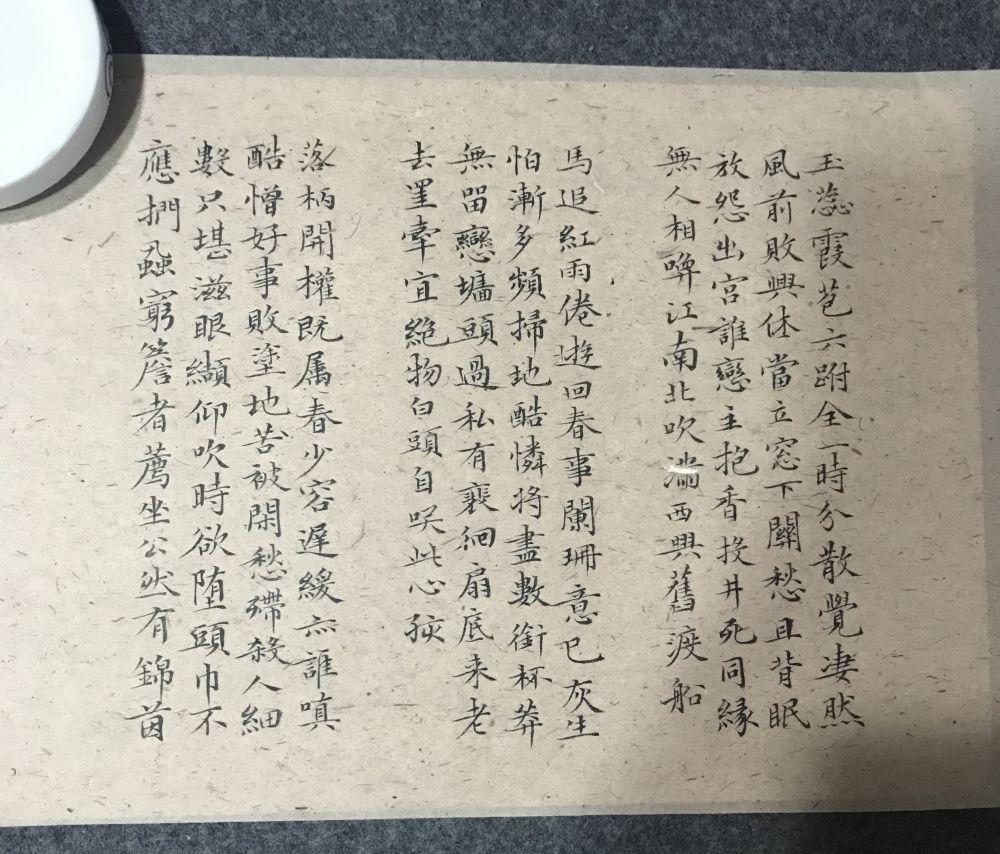 玉蕊霞苞六跗全一時分散覺凄然
風前敗興休當立窓下關愁且背眠
放怨出宮誰戀主抱香投井死同緣
無人相喚江南北吹滿西興舊渡船
馬追紅雨倦遊回春事闌珊意已灰生
怕漸多頻掃地酷憐將盡數銜杯莽
無留戀墉頭過私有裵徊扇底来老
去罣牽宜絶物白頭自咲此心孩
落柄開權既属春少容遲緩亦誰嗔
酷憎好事敗塗地苦被閑愁殢殺人細
數只堪滋眼纈仰吹時欲堕頭巾不
應捫蝨窮簷者薦坐公然有錦茵